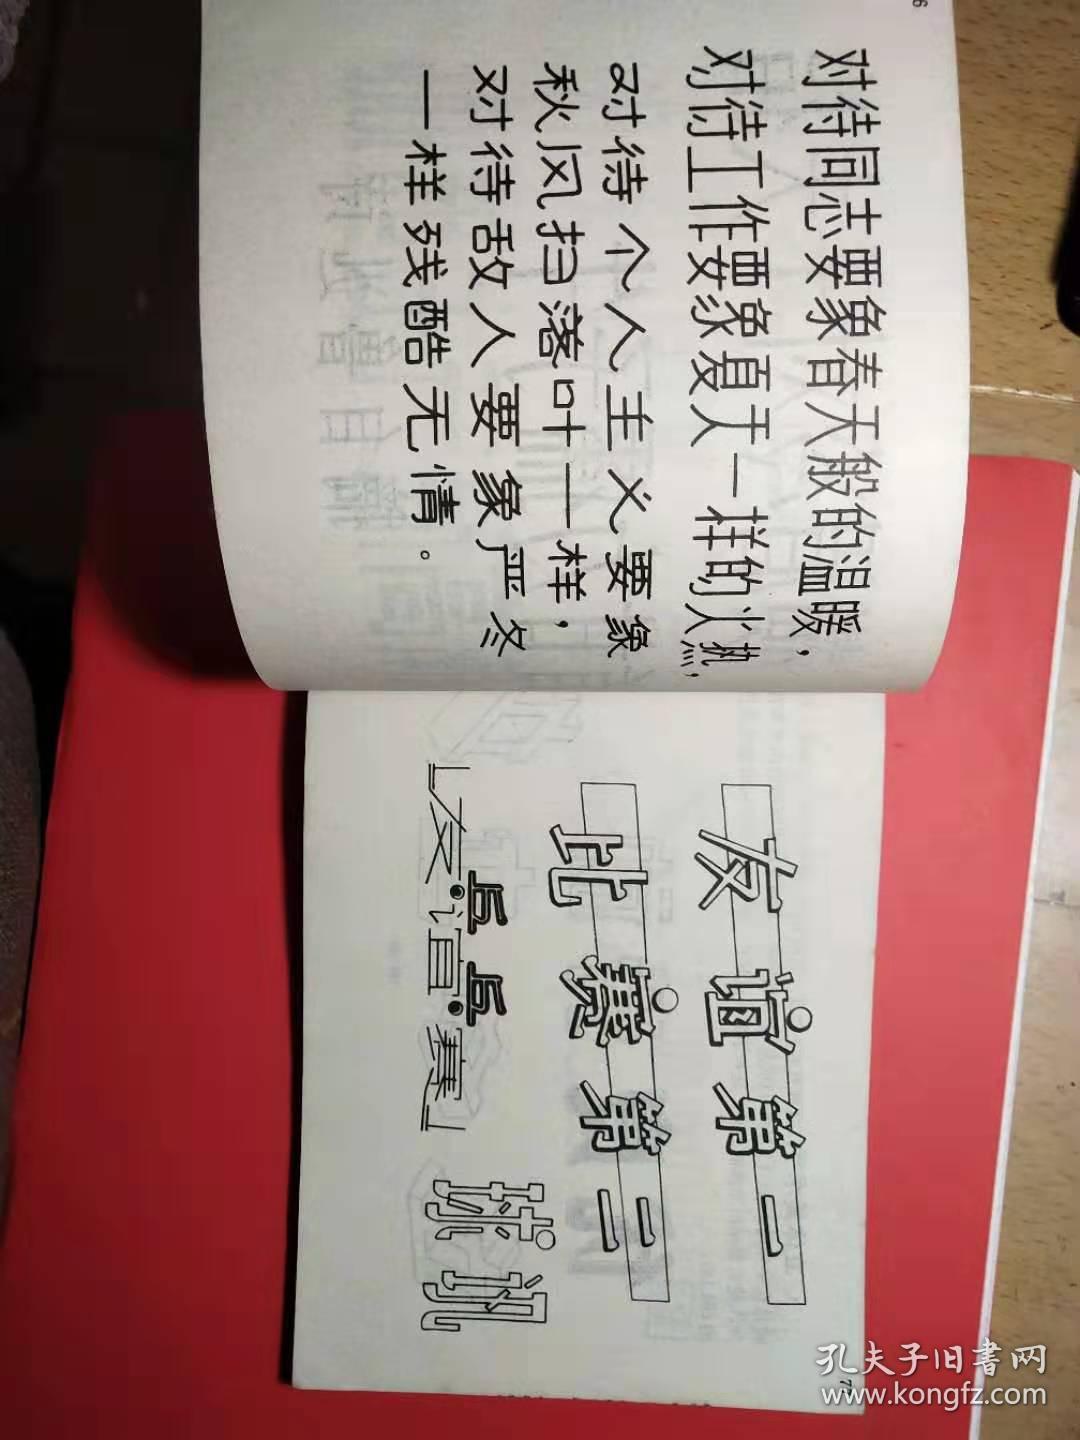 对待同志要象春天般的温暖，
对待工作要象夏天一样的火热，
对待个人主义要象
秋风扫落叶一样，
对待敌人要象严冬
一样残酷无情。
友谊第一
比赛第二
友谊赛
球
孔夫子旧書网
www.kongfz.com